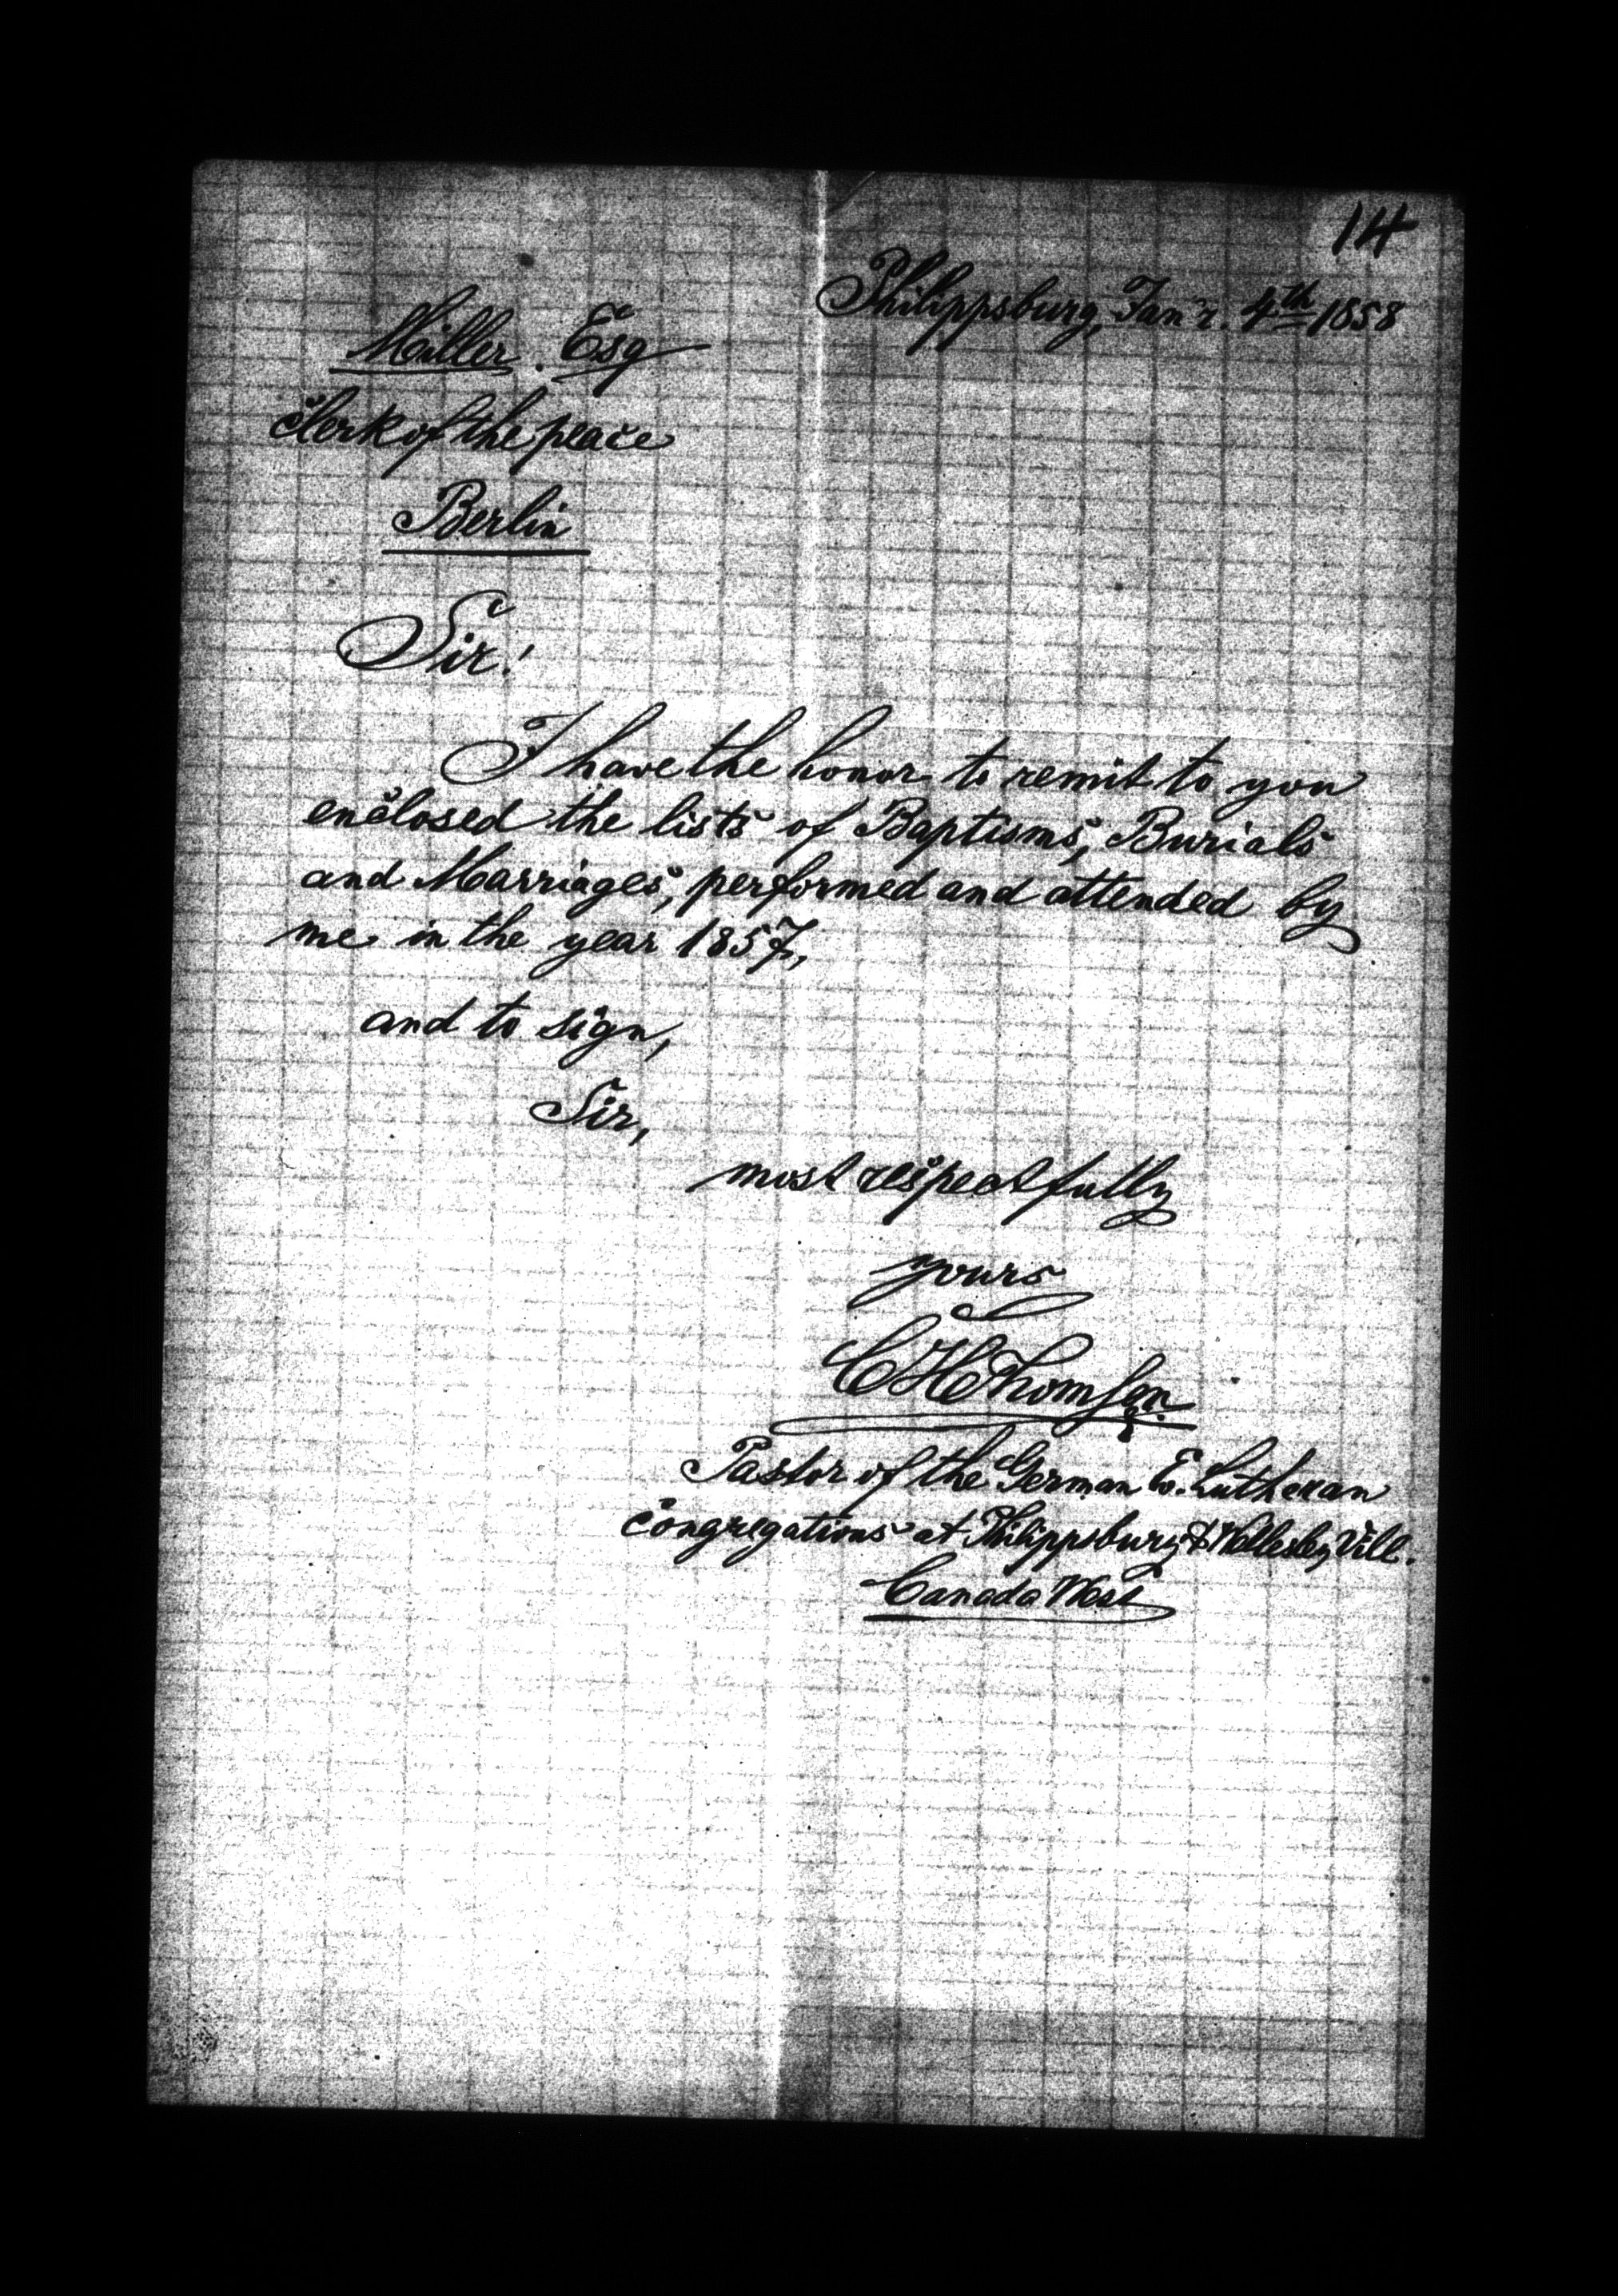 14
Philippsburg, Jan'r. 4th 1858
Miller. Esq
Clerk of the peace
Berlin
Sir!
I have the honor to remit to you
enclosed the lists of Baptisms, Burials
and Marriages, performed and attended by
me in the year 1857,
and to sign,
Sir,
most respectfully
yours
C H Thomsen.
Pastor of the German Ev. Lutheran
Congregations at Philippsburg & Wellesley Vill.
Canada West